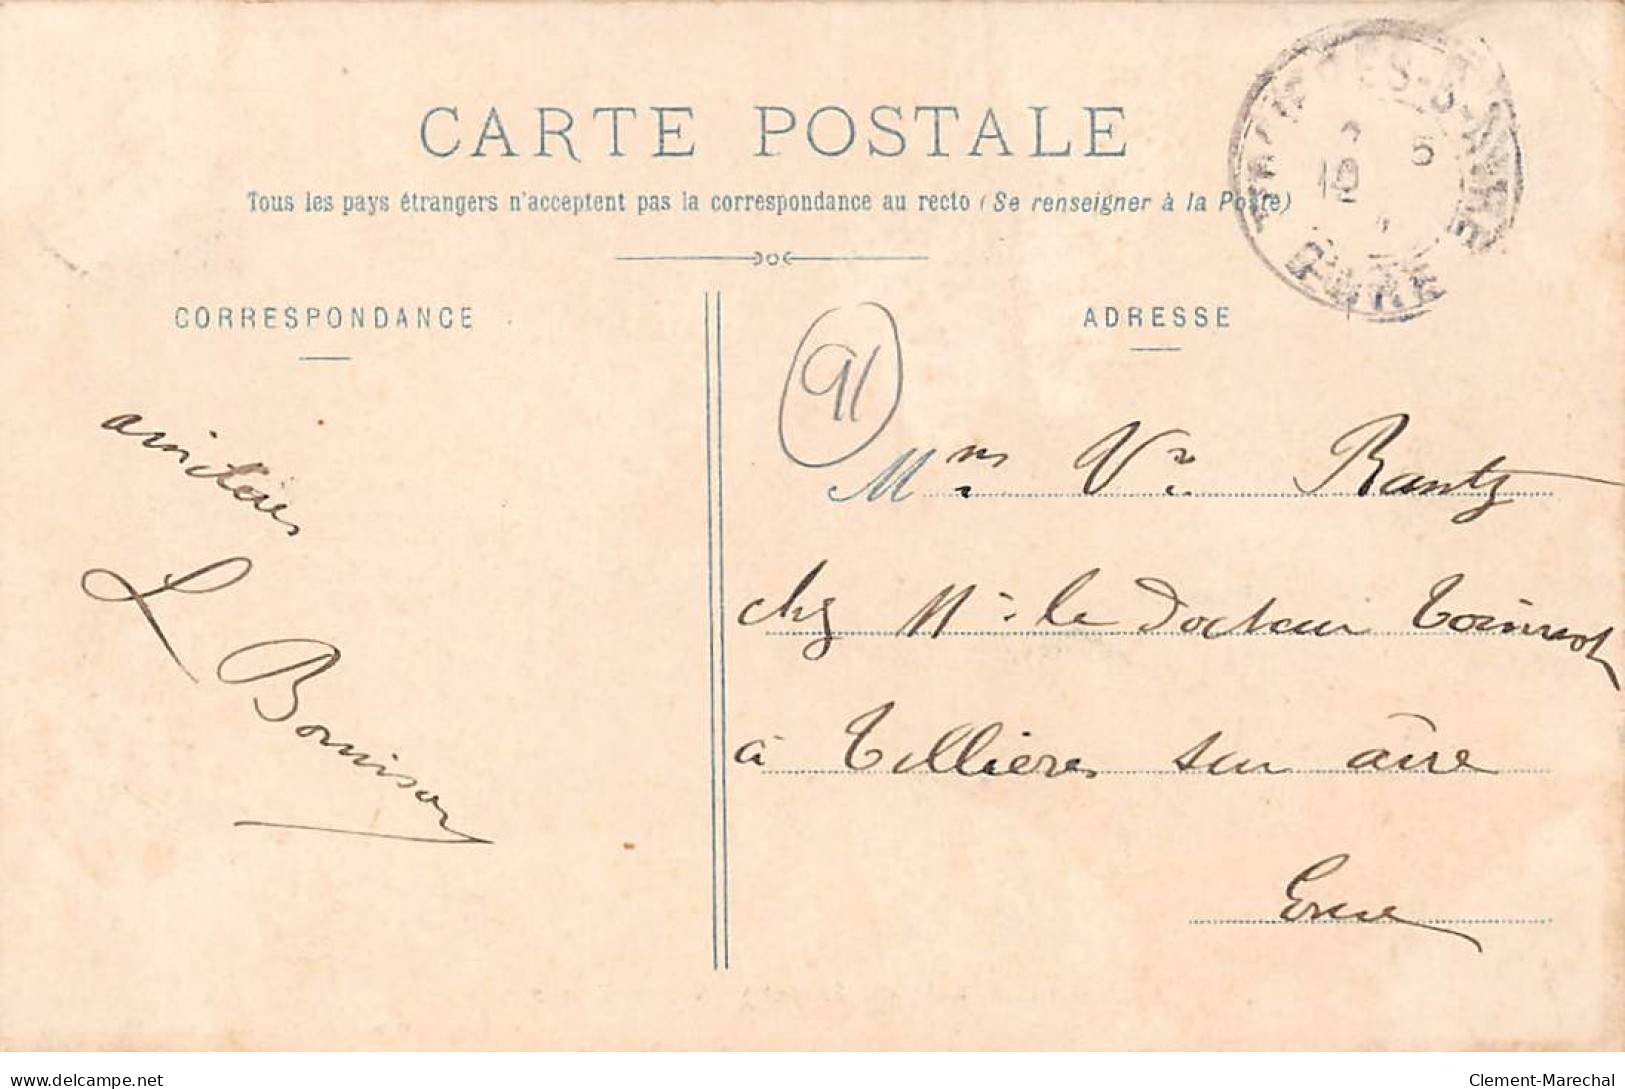 CARTE POSTALE
Tous les pays étrangers n'acceptent pas la correspondance au recto (Se renseigner à la Poste)
CORRESPONDANCE
ADRESSE
91
amitiés
L Bomison
Mme Vve Rantz
chez Mr le Docteur
à Tillières sur avre
Eure
EURE
delcampe.net
Clement-Marechal